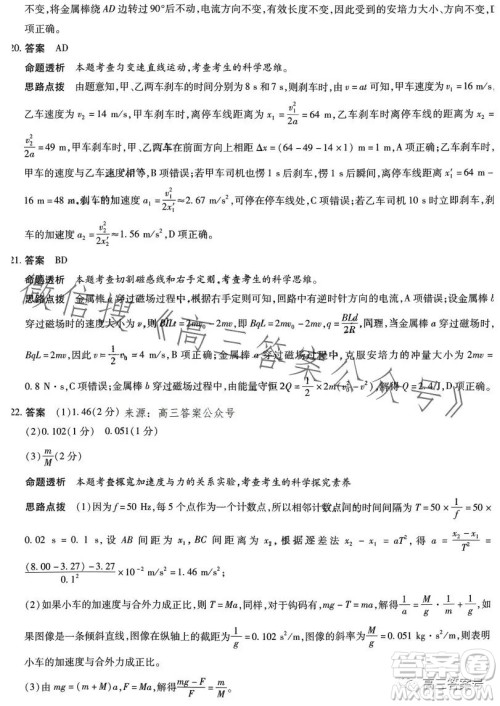 不变,将金属棒绕 AD 边转过 90°后不动,电流方向不变,有效长度不变,因此受到的安培力大小、方向不变,D项
20. 答案 AD
命题透析 本题考查匀变速直线运动,考查考生的科学思维。
思路点拨 由题意知,甲、乙两车刹车的时间分别为 8 s 和 7 s,则刹车时,由 v = at 可知,甲车速度为 v₁ = 16 m/s,
乙车速度为 v₂ = 14 m/s,甲车刹车时,离停车线距离为 x₁ = v₁²/2a = 64 m,乙车刹车时,离停车线的距离为 x₂ =
v₂²/2a = 49 m,甲车刹车时,甲、乙两车相距 Δx = (64 - 49 - 14 × 1) m = 1 m,A 项正确;甲车开始刹车时,
甲车的速度与乙车速度相等,B 项错误;若甲车司机也愣 1 s 后刹车,则甲车刹车时离停车线的距离为 x₁′ = 64 m -
16 m = 48 m,刹车的加速度 a₁ = v₁²/2x₁′ ≈ 2.67 m/s²,可停在停车线处,C 项错误;若乙车司机不愣 1 s 刹车,则乙车
的加速度 a₂ = v₂²/2x₂′ ≈ 1.56 m/s²,D 项正确。
21. 答案 BD
命题透析 本题考查切割磁感线和右手定则,考查考生的科学思维。
思路点拨 金属棒 a 穿过磁场过程中,根据右手定则可知,回路中有逆时针方向的电流,A 项错误;设金属棒 b
穿过磁场时的速度大小为 v,则 BILt = 2mv₀ - 2mv,即 BqL = 2mv₀ - 2mv,q = BLd/2R,同理,当金属棒 a 穿过磁场时,
BqL = 2mv = 2m × ½v₀ = mv₀,B 项正确;金属棒 a 穿过磁场过程中,克服安培力的冲量大小为 2mv =
0.8 N·s,C 项错误;金属棒 b 穿过磁场过程中,由能量守恒 2Q = ½ × 2mv₀² - ½ × 2mv²,Q = 2.4 J,D 项正确。
22. 答案 (1)1.46(2分) 来源:高三答案公众号
(2)0.102(2分) 0.051(2分)
(3)m/M(2分)
命题透析 本题考查探究加速度与力的关系实验,考查考生的科学探究素养
思路点拨 (1)因为 f = 50 Hz,每 5 个点作为一个计数点,所以相邻计数点之间的时间间隔为 T = 50 × 1/f = 50 ×
0.02 s = 0.1 s,设 AB 间距离为 x₁,BC 间距离为 x₂,根据逐差法 x₂ - x₁ = aT²,得 a = (x₂ - x₁)/T² =
((8.00 - 3.27) - 3.27)/0.1² × 10⁻² m/s² = 1.46 m/s²;
(2)如果小车的加速度与合外力成正比,则 T = Ma,对于钩码有,mg - T = ma,解得 1/a = M/g · 1/m + 1/g,如
果图像是一条倾斜直线,图像在纵轴上的截距为 1/g = 0.102 s²/m,图像的斜率为 M/g = 0.051 kg·s²/m,则表明
小车的加速度与合外力成正比;
(3)由 mg = (m + M)a,F = Ma,解得 (mg - F)/F = m/M。
微信搜《高三答案公众号》
高三答案号